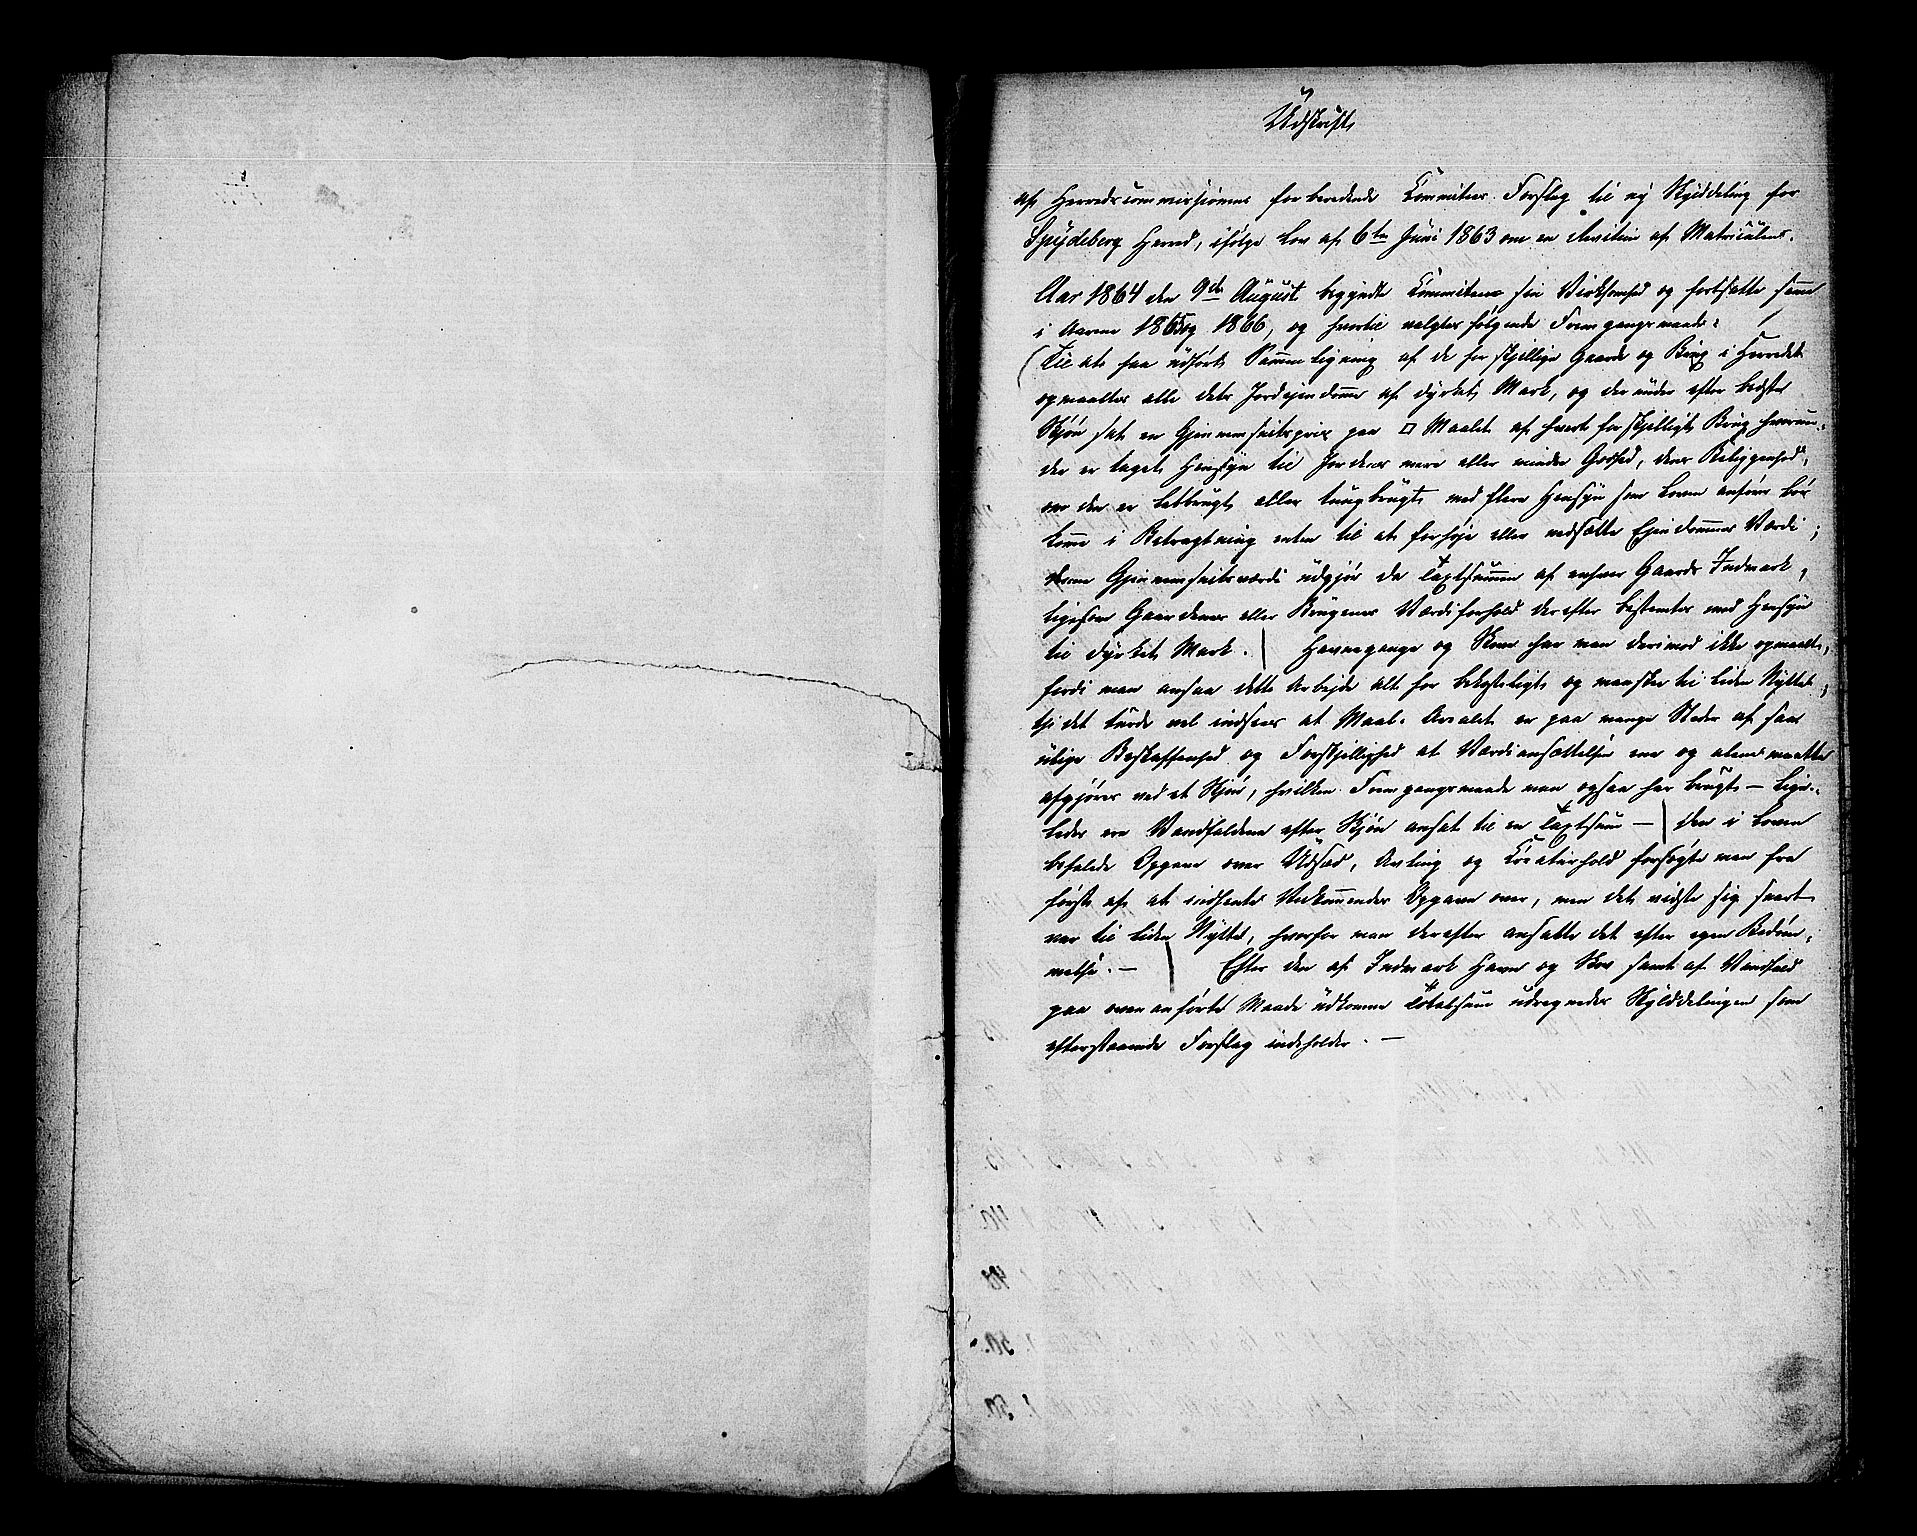 Udskrift
af Herredscommissionens forberedende Committees Forslag til ny Skylddeling for
Spydeberg Herred, ifølge Lov af 6te Juni 1863 om en Revision af Matriculen.
Aar 1864 den 9de August begyndte Committeen sin Virksomhed og fortsatte samme
i Aarene 1865 og 1866, og hvortil valgtes følgende Fremgangsmaade:
(Til at faa udført Sammenligning af de forskjellige Gaarde og Brug i Herredet
opmaaltes alle dets Jordejendomme af dyrket Mark, og derunder efter bedste
Skjøn sat en Gjennemsnitspris paa □ Maalet af hvert forskjelligt Brug hvorun-
der er taget Hensyn til Jordens mere eller mindre Godhed, dens Beliggenhed,
om den er letbrugt eller tungbrugt med flere Hensyn som Loven anfører bør
komme i Betragtning enten til at forhøje eller nedsætte Ejendommens Værdi;
denne Gjennemsnitsværdi udgjør da Taxtsummen af enhver Gaards Indmark,
ligesom Gaardenes eller Brugenes Værdiforhold derefter bestemtes med Hensyn
til dyrket Mark. | Havnegange og Skove har man derimod ikke opmaalt,
fordi man ansaa dette Arbejde alt for bekosteligt og maaske til liden Nytte;
thi det turde vel indsees at Maal-Arealet er paa mange Steder af saa
ulige Beskaffenhed og Forskjellighed at Værdiansættelsen ene og alene maatte
afgjøres ved et Skjøn, hvilken Fremgangsmaade man ogsaa har brugt – Lige-
ledes ere Vandfaldene efter Skjøn ansat til en Taxtsum – | Den i Loven
befalede Opgave over Udsæd, Avling og Creaturhold forsøgte man fra
først af at indhente Vedkommendes Opgave over, men det viste sig snart
var til liden Nytte, hvorfor man derefter ansatte det efter egen Bedøm-
melse. – | Efter den af Indmark Havn og Skov samt af Vandfald
paa ovenanførte Maade udkomne Totalsum udregnedes Skylddelingen som
efterstaaende Forslag indeholder. –